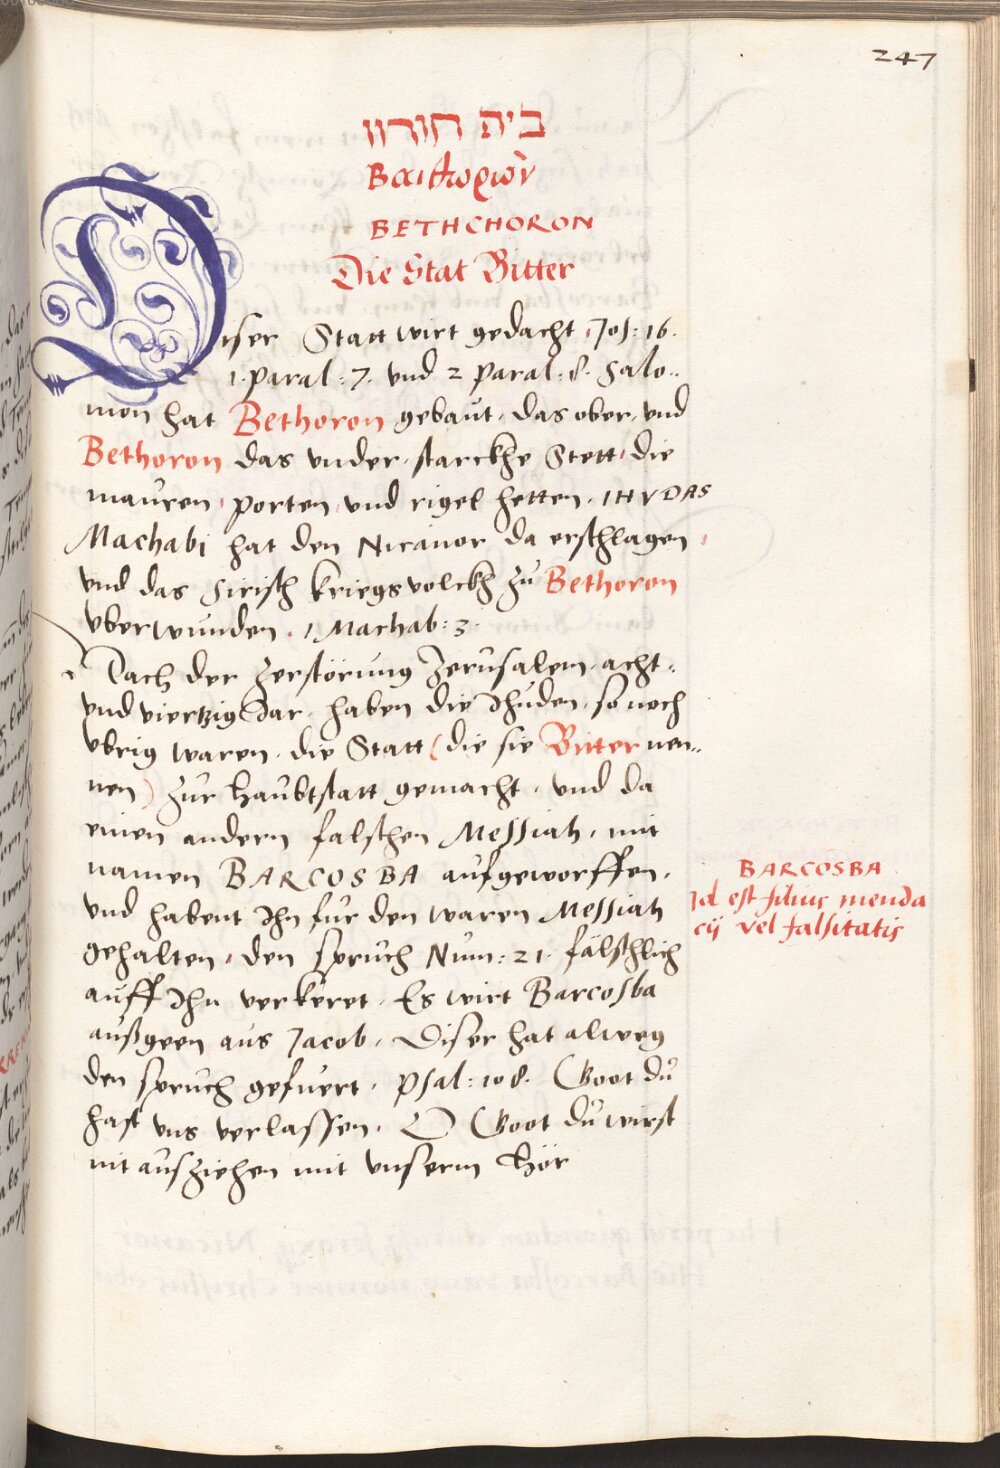 247
בית חורון
Βαιθωρων
BETHCHORON
Die Stat Bitter
Diser Statt wirt gedacht, Jos: 16.
1. Paral: 7. vnd 2 Paral: 8. Salo..
mon hat Bethoron gebaut, das ober, vnd
Bethoron das vnder, starckhe Stett, die
mauren, porten, vnd rigel hetten. IHVDAS
Machabi hat den Nicanor da erschlagen,
vnd das Sirisch kriegsvolckh zu Bethoron
vberwunden. 1 Machab: 3.
Nach der zerstörung Jerusalem, acht,
vnd viertzig Jar, haben die Jhuden, so noch
vbrig waren, die Statt (die sie Bitter nen..
nen) zur haubtstatt gemacht, vnd da
einen andern falschen Messiah, mit
namen BARCOSBA aufgeworffen,
vnd habent Ihn fur den waren Messiah
gehalten, den spruch Num: 21. fälschlich
auff Ihn verkeret. Es wirt Barcosba
außgeen aus Jacob. Diser hat alweg
den spruch gefuert. Psal: 108. Goot du
hast vns verlassen, O Goot du wirst
nit ausziehen mit vnserm Hör
BARCOSBA
Id est filius menda
cij vel falsitatis